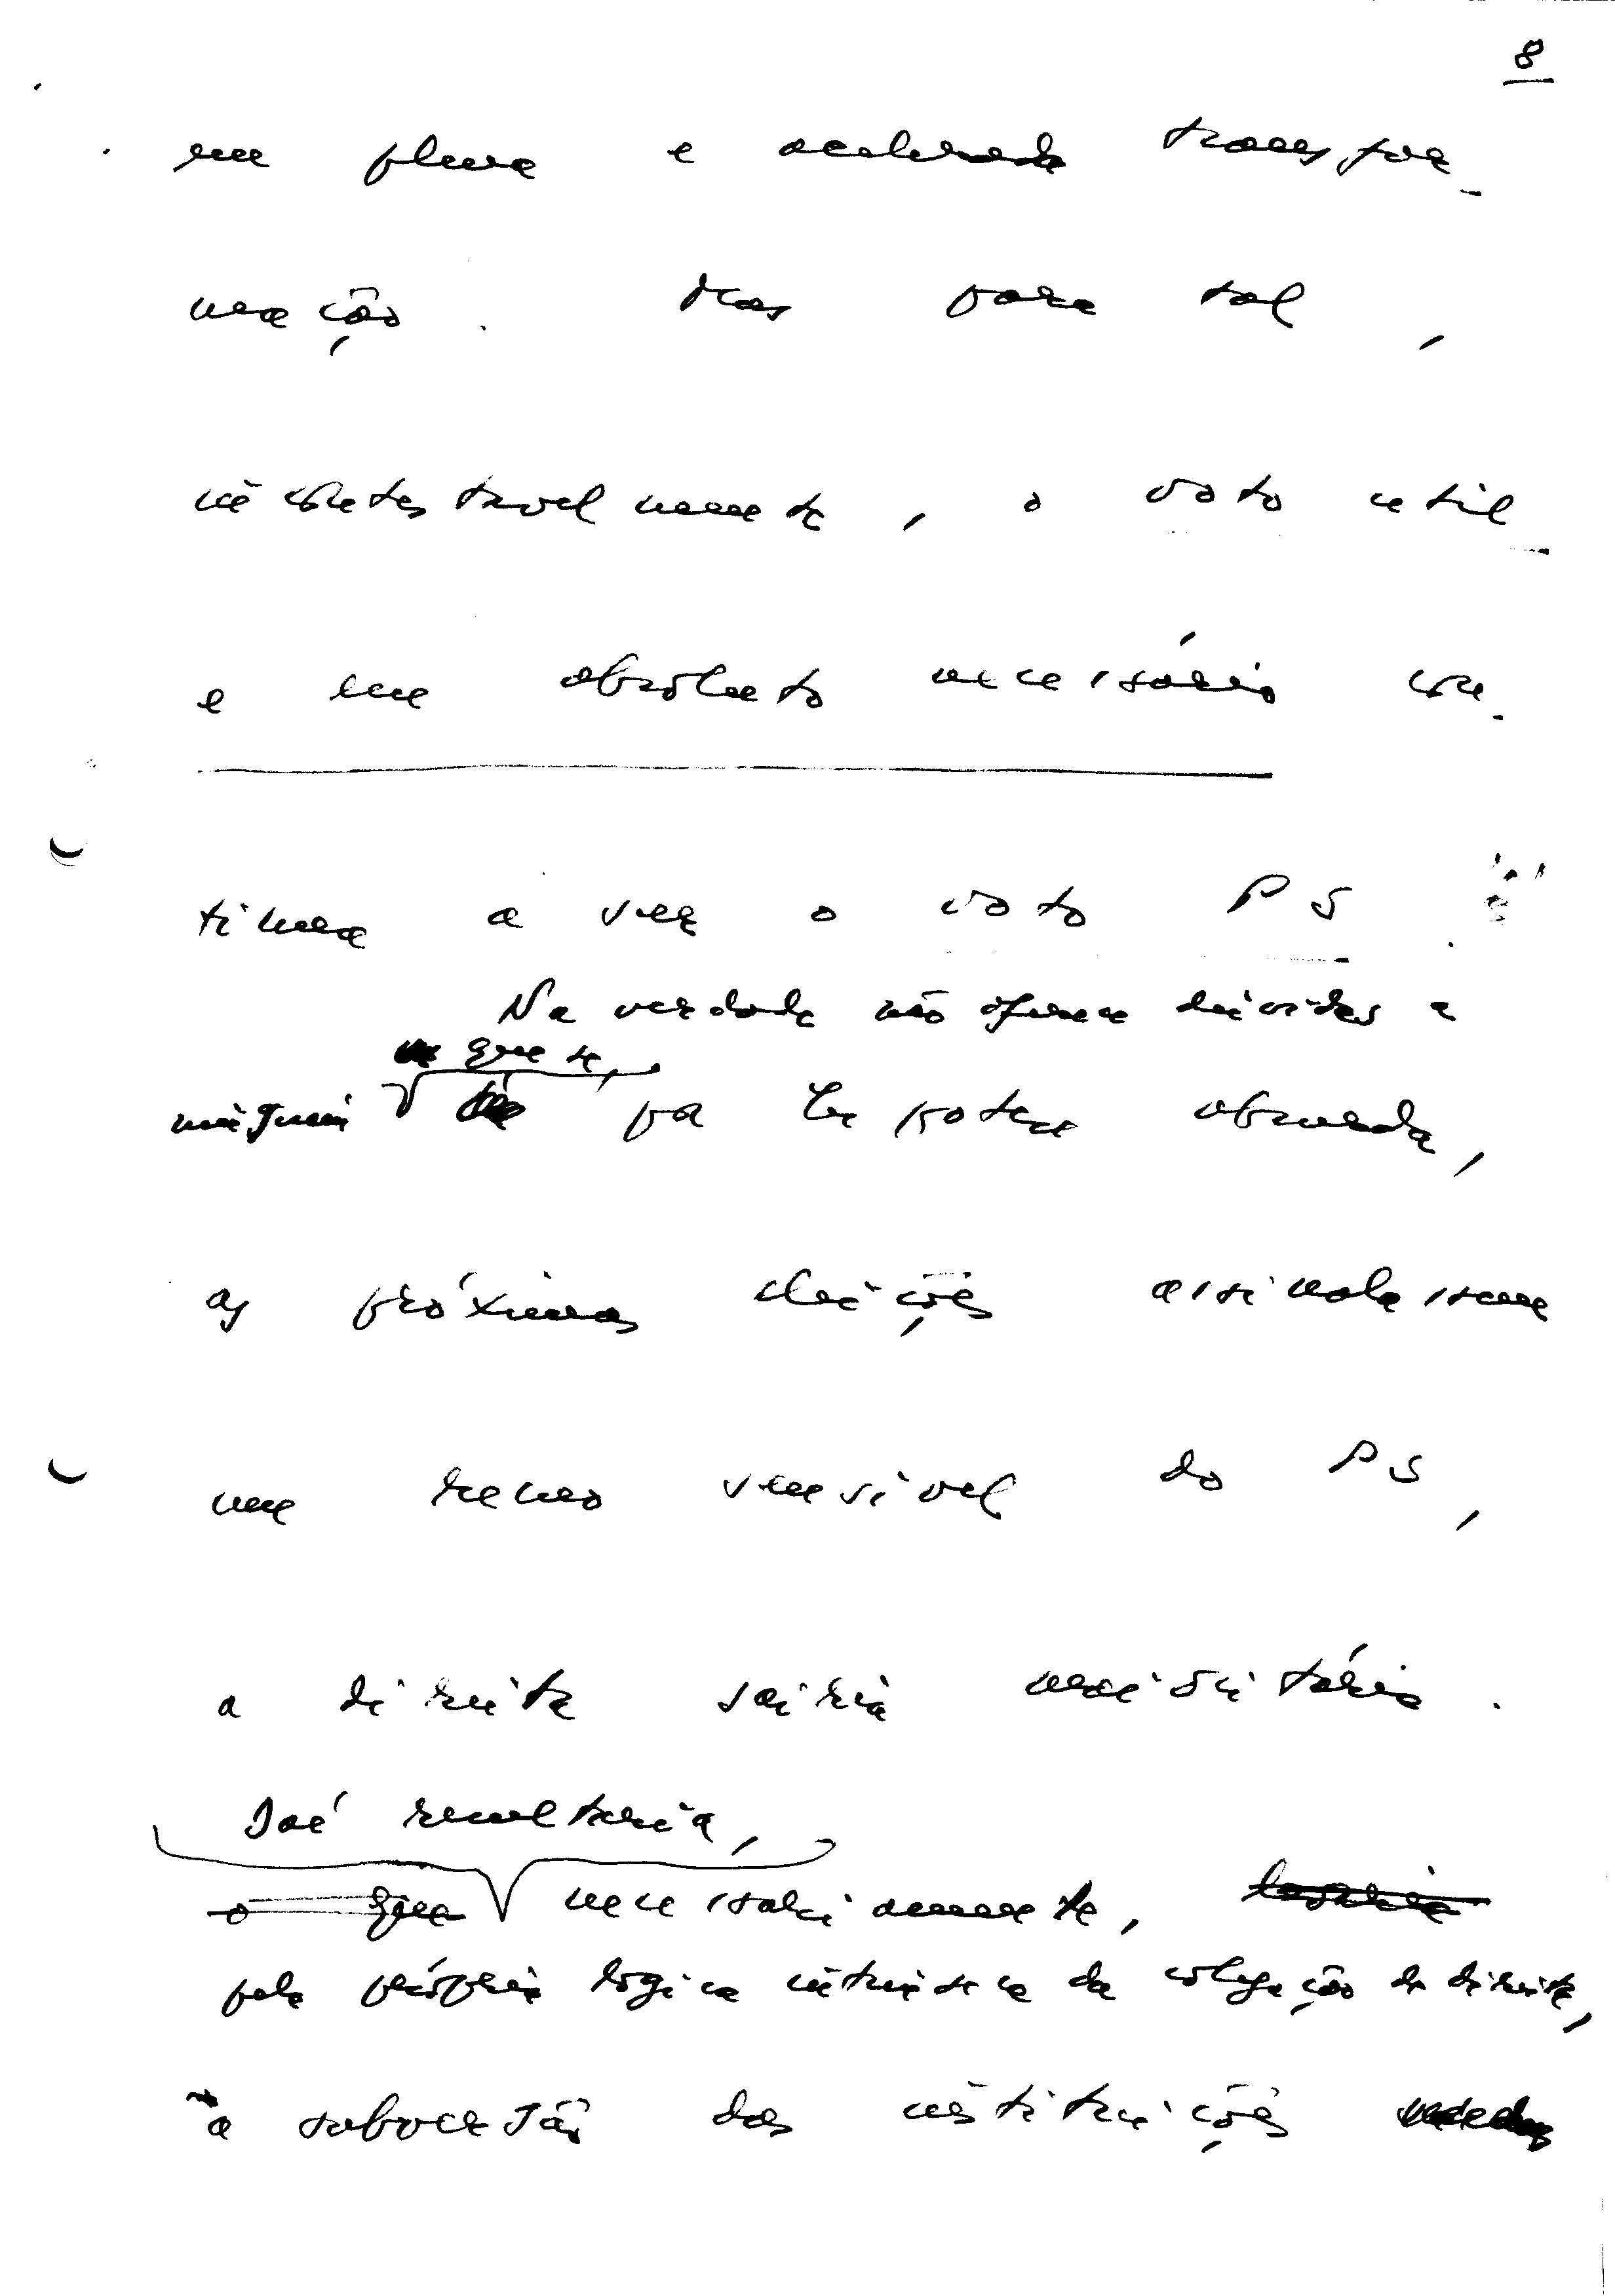 8
em plena e acelerada transfor-
mação. Mas para tal,
incontestavelmente, o voto util
e em absoluto necessário con-
tinua a ser o voto PS.
Na verdade não oferece dúvidas a
ninguém que se, por hipotese absurda,
as próximas eleições assinalassem
um recuo sensivel do PS,
a direita sairia maioritária.
Daí resultaria,
o que necessariamente,
pela própria logica intrinseca da coligação de direita,
a sabotagem das instituições